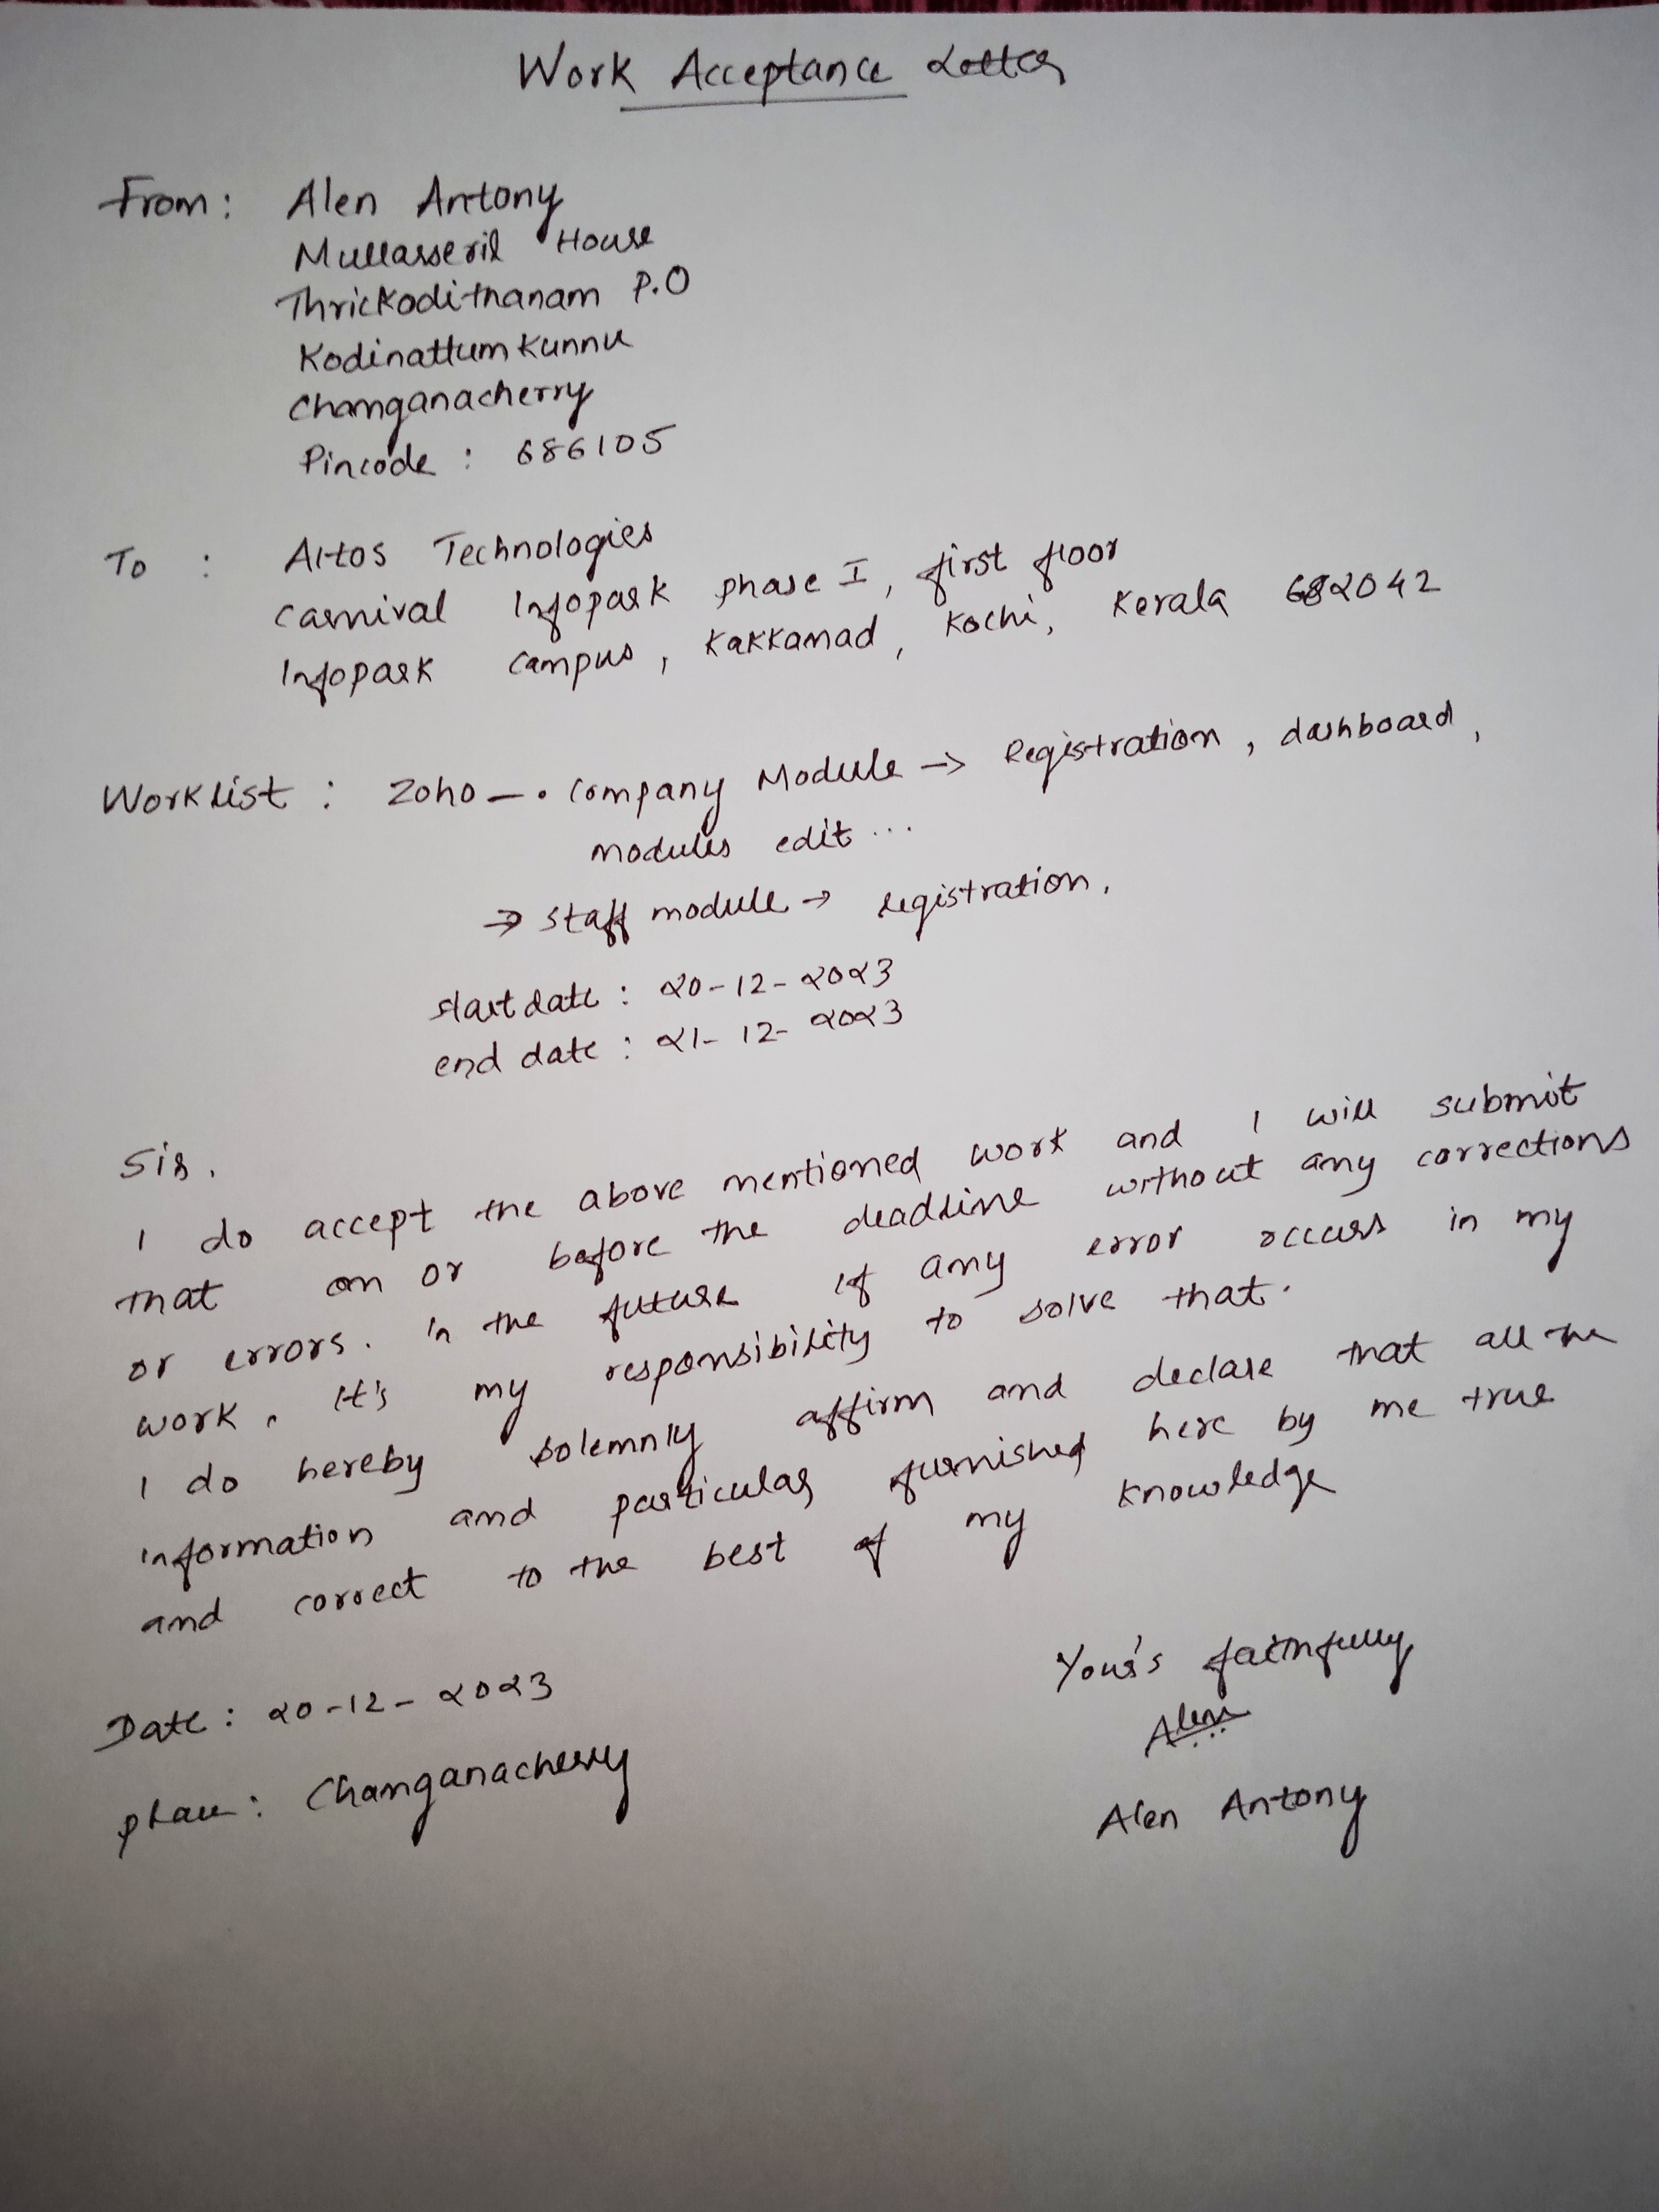 Work Acceptance Letter
From: Alen Antony
Mullasseril House
Thrickodithanam P.O
Kodinattumkunnu
Changanacherry
Pincode : 686105
To : Altos Technologies
Carnival Infopark phase I, first floor
Infopark campus, Kakkanad, Kochi, Kerala 682042
Worklist : Zoho —. Company Module → Registration, dashboard,
modules edit ...
→ staff module → registration.
start date : 20-12-2023
end date : 21-12-2023
Sir,
I do accept the above mentioned work and I will submit
that on or before the deadline without any corrections
or errors. In the future if any error occurs in my
work, it's my responsibility to solve that.
I do hereby solemnly affirm and declare that all the
information and particular furnished here by me true
and correct to the best of my knowledge
Date : 20-12-2023
Your's faithfully
Alen
place : Changanacherry
Alen Antony